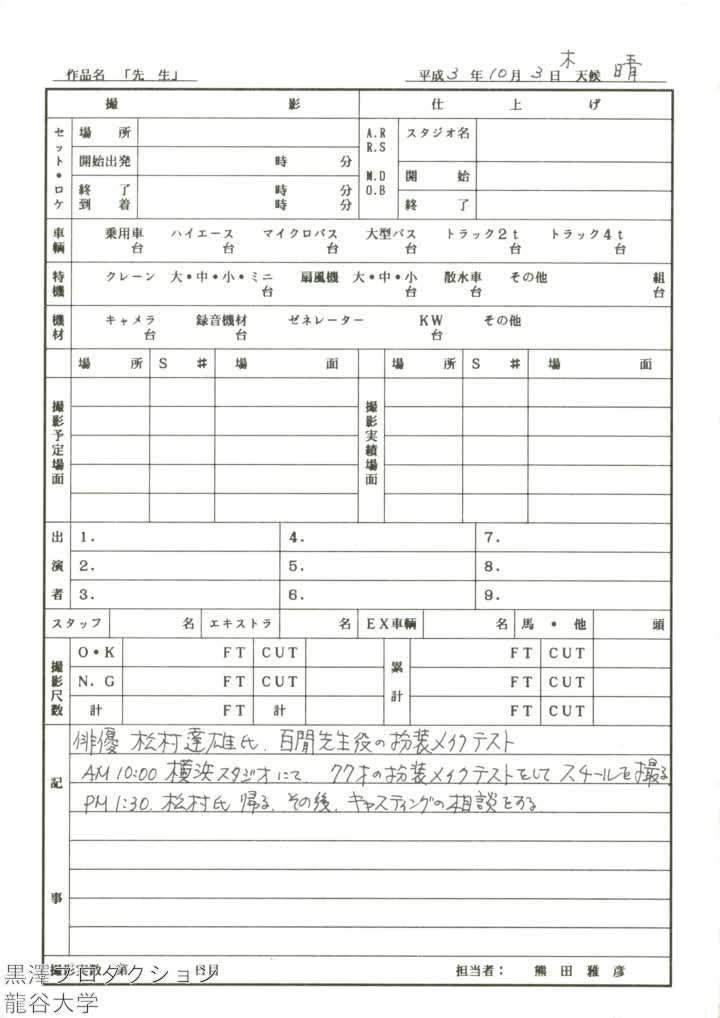 作品名 「先 生」 平成3年10月3日 木 天候 晴
撮 影 仕 上 げ
セット・ロケ 場 所 A.R R.S M.D O.B スタジオ名
開始出発 時 分 開 始
終 了 時 分 終 了
到 着 時 分
車輌 乗用車 台 ハイエース 台 マイクロバス 台 大型バス 台 トラック2t 台 トラック4t 台
特機 クレーン 大・中・小・ミニ 台 扇風機 大・中・小 台 散水車 台 その他 組 台
機材 キャメラ 台 録音機材 台 ゼネレーター KW 台 その他
場 所 S # 場 面 場 所 S # 場 面
撮影予定場面 撮影実績場面
出演者 1. 4. 7.
2. 5. 8.
3. 6. 9.
スタッフ 名 エキストラ 名 EX車輌 名 馬・他 頭
撮影尺数 O・K FT CUT 累計 FT CUT
N.G FT CUT FT CUT
計 FT 計 FT CUT
記事
俳優 松村達雄氏、百閒先生役の扮装メイクテスト
AM 10:00 横浜スタジオにて、77才の扮装メイクテストをして スチールを撮る。
PM 1:30. 松村氏 帰る。その後、キャスティングの相談をする。
撮影実数 第 日目 担当者: 熊 田 雅 彦
黒澤プロダクション
龍谷大学